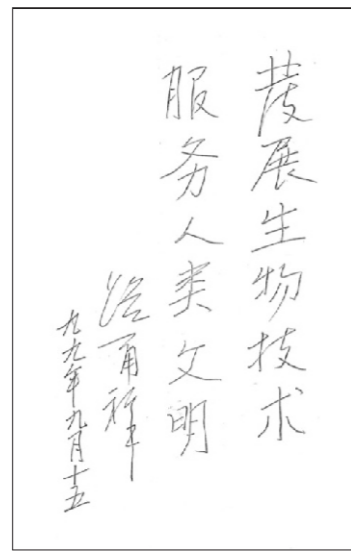 发展生物技术
服务人类文明
路甬祥
九九年九月十五